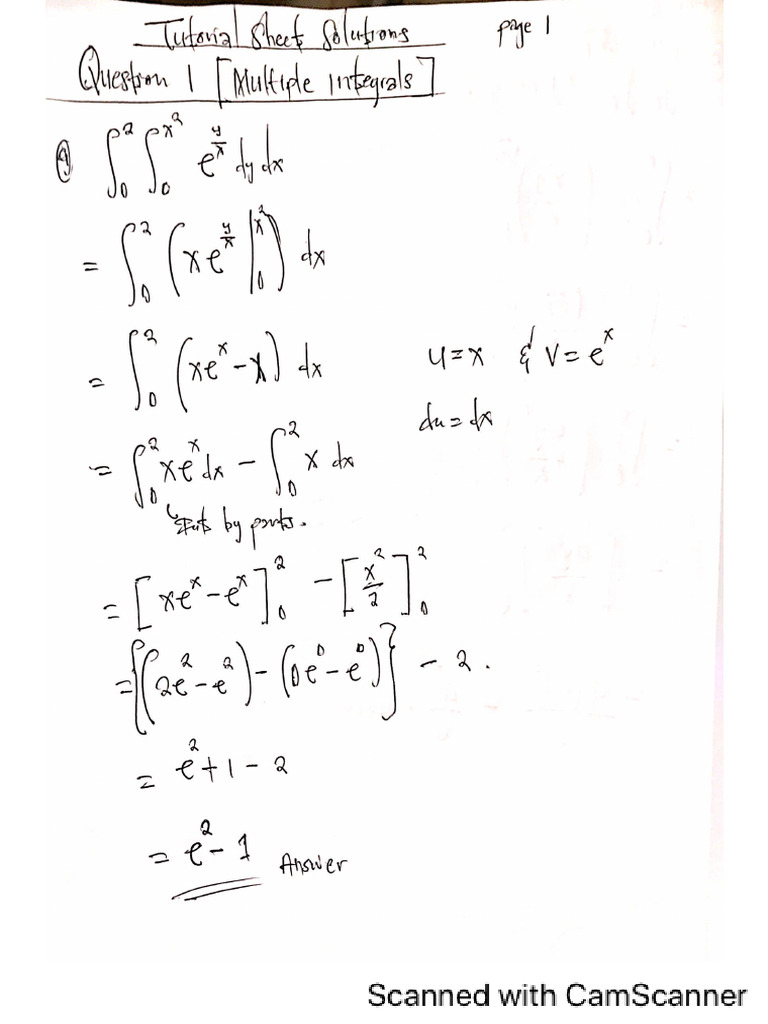 Tutorial Sheet Solutions page 1
Question 1 [Multiple integrals]
(a) ∫₀² ∫₀^{x²} e^{y/x} dy dx
= ∫₀² (x e^{y/x} |₀^{x²}) dx
= ∫₀² (xe^x - x) dx u=x & v=e^x
du=dx
= ∫₀² xe^x dx - ∫₀² x dx
by parts.
= [xe^x - e^x]₀² - [x²/2]₀²
= {(2e² - e²) - (0e⁰ - e⁰)} - 2.
= e² + 1 - 2
= e² - 1 Answer
Scanned with CamScanner